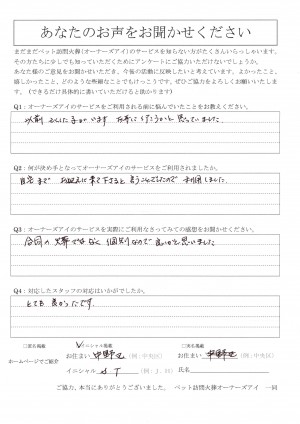 あなたのお声をお聞かせください
まだまだペット訪問火葬(オーナーズアイ)のサービスを知らない方がたくさんいらっしゃいます。
そのかたちに少しでも知っていただくためにアンケートにご協力いただけないでしょうか。
あなた様のご意見をお聞かせいただき、今後の活動に反映したいと考えています。よかったこと、
嬉しかったこと、どのような些細なことでもけっこうです。ぜひご協力をよろしくお願いいたします。
(できるだけ具体的に書いていただけると助かります)
Q1：オーナーズアイのサービスをご利用される前に悩んでいたことをお教えください。
どうしようかと思っていました
Q2：何が決め手となってオーナーズアイのサービスをご利用されましたか。
自宅まで お迎えに来て下さると言うことでしたので 利用しました
Q3：オーナーズアイのサービスを実際にご利用なさってみての感想をお聞かせください。
合同の火葬ではなく 個別なので良いかと思いました
Q4：対応したスタッフの対応はいかがでしたか。
とても 良かったです。
□匿名掲載 ✓イニシャル掲載 □実名掲載
ホームページでご紹介 お住まい 中野区 (例：中央区) お住まい 中野区 (例：中央区)
イニシャル S T (例：J. H) 氏名
ご協力、本当にありがとうございました。 ペット訪問火葬オーナーズアイ 一同